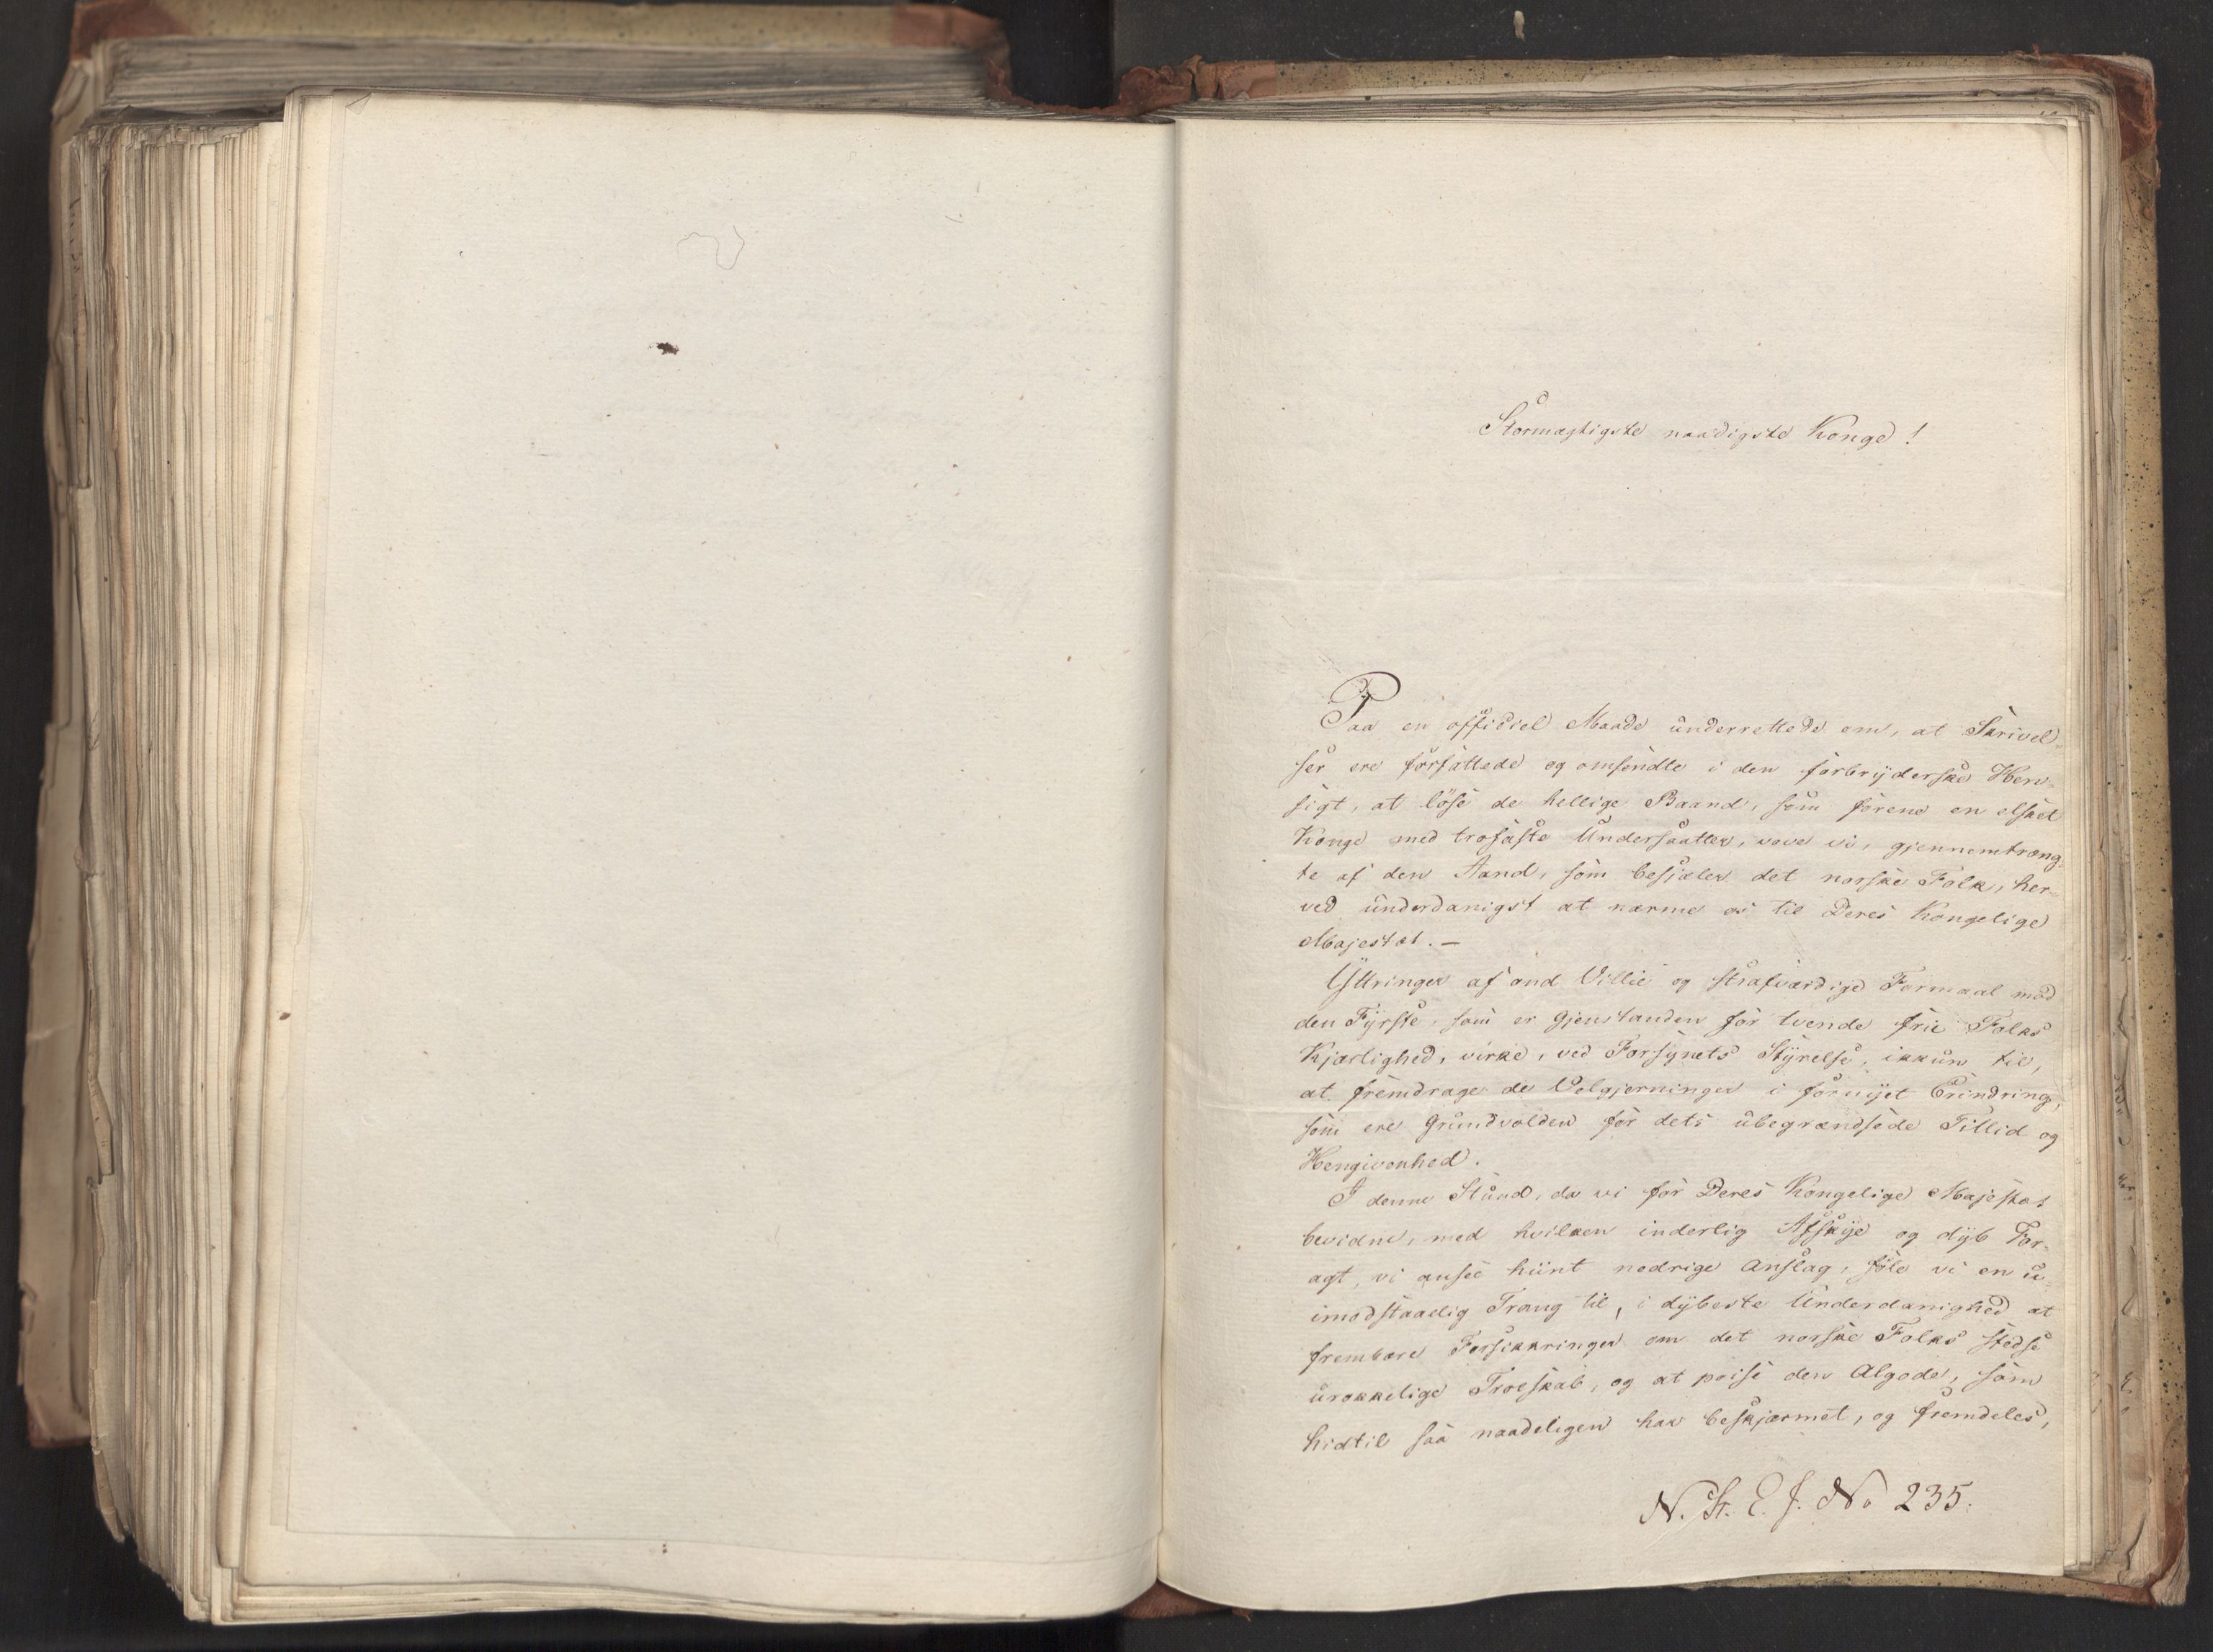 Stormægtigste naadigste Konge!
Paa en officiel Maade underrettede om, at Skrivel-
ser ere forfattede og omsendte i den forbryderske Hen-
sigt, at löse de hellige Baand, som forene en elsket
Konge med trofaste Undersaatter, vove vi, gjennemtræng-
te af den Aand, som besjæler det norske Folk, her-
ved underdanigst at nærme os til Deres Kongelige
Majestæt. —
Yttringer af ond Villie og strafværdige Formaal mod
den Fyrste, som er Gjenstanden for tvende frie Folks
Kjærlighed, virke, ved Forsynets Styrelse, ikkun til,
at fremdrage de Velgjerninger i fornyet Erindring,
som ere Grundvolden for dets ubegrændsede Tillid og
Hengivenhed.
I denne Stund, da vi for Deres Kongelige Majestæt
bevidne, med hvilken inderlig Afskye og dyb For-
agt, vi ansee hiint nedrige Anslag, föle vi en u-
imodstaaelig Trang til, i dybeste Underdanighed at
frembære Forsikkringer om det norske Folks stedse
urokkelige Troeskab, og at prise den Algode, som
hidtil saa naadeligen har beskjærmet, og fremdeles,
N. St. E. J. No 235.